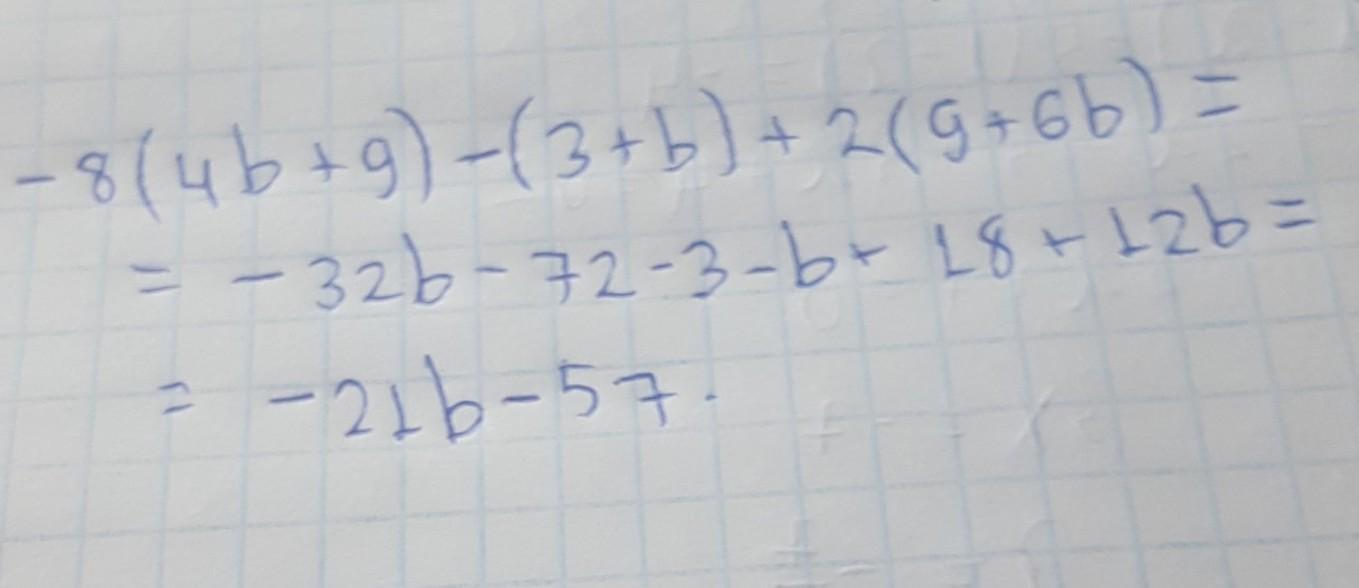 -8(4b+9)-(3+b)+2(9+6b)=
=-32b-72-3-b+18+12b=
=-21b-57.